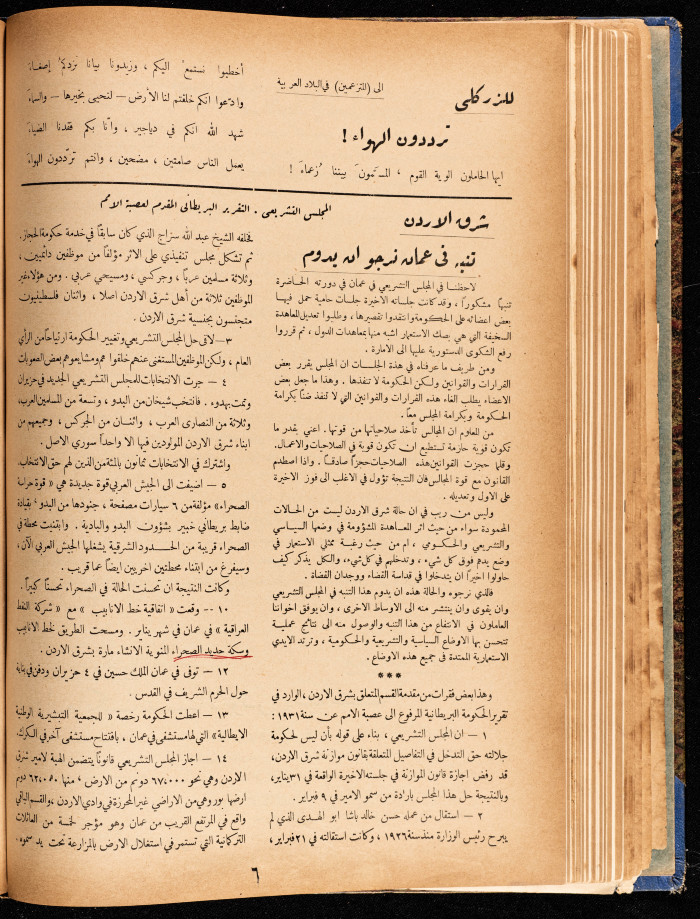 للزركلي
الى (المتزعمين) في البلاد العربية
ترددون الهواء !
ايها الحاملون الوية القوم ، المسمّون بيننا زُعماءَ !
أخطبوا نستمع اليكم ، وزيدونا بيانا نزدكمُ إصغاءَ
وادعوا انكم خلقتم لنا الأرض — لنحيى بخيرها — والسماءَ
شهد الله انكم في دياجير ، وانّا بكم فقدنا الضياءَ
يعمل الناس صامتين ، مضحين ، وانتم تردّدون الهواءَ
شرق الاردن
المجلس التشريعي . التقرير البريطاني المقدم لعصبة الامم
تنبه في عمان نرجو ان يدوم
لاحظنا في المجلس التشريعي في عمان في دورته الحاضرة
تنبهاً مشكوراً ، وقد كانت جلساته الاخيرة جلسات حامية حمل فيها
بعض اعضائه على الحكومة وانتقدوا تقصيرها ، وطلبوا تعديل المعاهدة
السخيفة التي هي بصك الاستعمار اشبه منها بمعاهدات الدول ، ثم قرروا
رفع الشكوى الدستورية عليها الى الامارة .
ومن طريف ما عرفناه في هذه الجلسات ان المجلس يقرر بعض
القرارات والقوانين ولكن الحكومة لا تنفذها . وهذا ما جعل بعض
الاعضاء يطلب الغاء هذه القرارات والقوانين التي لا تنفذ ضناً بكرامة
الحكومة وبكرامة المجلس معاً .
من المعلوم ان المجالس تأخذ صلاحياتها من قوتها . اعني بقدر ما
تكون قوية حازمة تستطيع ان تكون قوية في الصلاحيات والاعمال.
وقلما حجزت القوانين هذه الصلاحيات حجزاً صادقاً . واذا اصطدم
القانون مع قوة المجالس فان النتيجة تؤول في الاغلب الى فوز الاخيرة
على الاول وتعديله .
وليس من ريب في ان حالة شرق الاردن ليست من الحالات
المحمودة سواء من حيث اثر المعاهدة المشؤومة في وضعها السياسي
والتشريعي والحكومي ، ام من حيث رغبة ممثلي الاستعمار في
وضع يدهم فوق كل شيء ، وتدخلهم في كل شيء ، والكل يذكر كيف
حاولوا اخيراً ان يتدخلوا في قداسة القضاء ووجدان القضاة .
فالذي نرجوه والحالة هذه ان يدوم هذا التنبه في المجلس التشريعي
وان يقوى وان ينتشر منه الى الاوساط الاخرى ، وان يوفق اخواننا
العاملون في الانتفاع من هذا التنبه والوصول منه الى نتائج عملية
تتحسن بها الاوضاع السياسية والتشريعية والحكومية ، وترتد الايدي
الاستعمارية الممتدة في جميع هذه الاوضاع .
***
وهذا بعض فقرات من مقدمة القسم المتعلق بشرق الاردن ، الوارد في
تقرير الحكومة البريطانية المرفوع الى عصبة الامم عن سنة ١٩٣١ :
١ — ان المجلس التشريعي ، بناء على قوله بأن ليس لحكومة
جلالته حق التدخل في التفاصيل المتعلقة بقانون موازنة شرق الاردن،
قد رفض اجازة قانون الموازنة في جلسته الاخيرة الواقعة في ٣١ يناير،
وبالنتيجة حل هذا المجلس بارادة من سمو الامير في ٩ فبراير .
٢ — استقال من عمله حسن خالد باشا ابو الهدى الذي لم
يبرح رئيس الوزارة منذ سنة ١٩٢٦ ، وكانت استقالته في ٢١ فبراير ،
فخلفه الشيخ عبد الله سراج الذي كان سابقاً في خدمة حكومة الحجاز.
ثم تشكل مجلس تنفيذي على الاثر مؤلفاً من موظفين دائمين ،
وثلاثة مسلمين عرباً ، وجركسي ، ومسيحي عربي . ومن هؤلاء غير
الموظفين ثلاثة من أهل شرق الاردن اصلا ، واثنان فلسطينيون
متجنسون بجنسية شرق الاردن .
٣ — لاقى حل المجلس التشريعي وتغيير الحكومة ارتياحاً من الرأي
العام ، ولكن الموظفين المستغنى عنهم خلقوا هم ومشايعوهم بعض الصعوبات
٤ — جرت الانتخابات للمجلس التشريعي الجديد في حزيران
وتمت بهدوء . فانتخب شيخان من البدو ، وتسعة من المسلمين العرب،
وثلاثة من النصارى العرب ، واثنان من الجركس ، وجميعهم من
ابناء شرق الاردن المولودين فيها الا واحداً سوري الاصل .
واشترك في الانتخابات ثمانون بالمئة من الذين لهم حق الانتخاب.
٥ — اضيفت الى الجيش العربي قوة جديدة هي « قوة حراسة
الصحراء » مؤلفة من ٦ سيارات مصفحة ، جنودها من البدو ، بقيادة
ضابط بريطاني خبير بشؤون البدو والبادية . وابتنيت محطة في
الصحراء قريبة من الحدود الشرقية يشغلها الجيش العربي الآن ،
وسيفرغ من ابتناء محطتين اخريين ايضاً عما قريب .
وكانت النتيجة ان تحسنت الحالة في الصحراء تحسناً كبيراً .
١٠ — وقعت « اتفاقية خط الانابيب » مع « شركة النفط
العراقية » في عمان في شهر يناير . ومسحت الطريق لخط الانابيب
وسكة حديد الصحراء المنوية الانشاء مارة بشرق الاردن .
١٢ — توفى في عمان الملك حسين في ٤ حزيران ودفن في بناية
حول الحرم الشريف في القدس .
١٣ — اعطت الحكومة رخصة « للجمعية التبشيرية الوطنية
الايطالية » التي لها مستشفى في عمان ، بافتتاح مستشفى آخر في الكرك.
١٤ — اجاز المجلس التشريعي قانوناً يتضمن الهبة لامير شرق
الاردن وهي نحو ٦٧،٠٠٠ دونم من الارض ، منها ٦٢،٠٥٠ دونم
ارضها بور وهي من الاراضي غير المحرزة في وادي الاردن ، والقسم الباقي
واقع في المرتفع القريب من عمان وهو مؤجر لخمسة من العائلات
التركمانية التي تستمر في استغلال الارض بالمزارعة تحت يد سموه .
٦